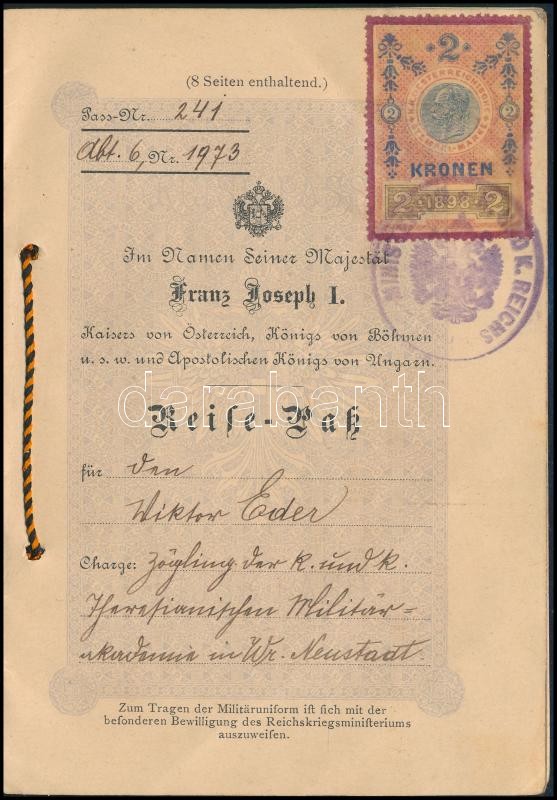 (8 Seiten enthaltend.)
Pass-Nr. 241
Abt. 6, Nr. 1973
2
2 2
KRONEN
2 1898 2
K. REICHS
Im Namen Seiner Majestät
Franz Joseph I.
Kaisers von Österreich, Königs von Böhmen
u. s. w. und Apostolischen Königs von Ungarn.
darabanth
Reise-Paß
für den
Wiktor Eder
Charge: Zögling der k. und k.
Theresianischen Militär=
akademie in Wr. Neustadt.
Zum Tragen der Militäruniform ist sich mit der
besonderen Bewilligung des Reichskriegsministeriums
auszuweisen.